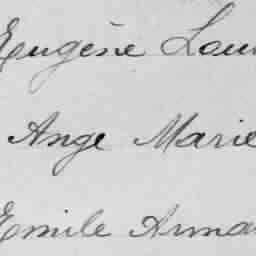 Eugène Lou
Ange Marie
Emile Arma